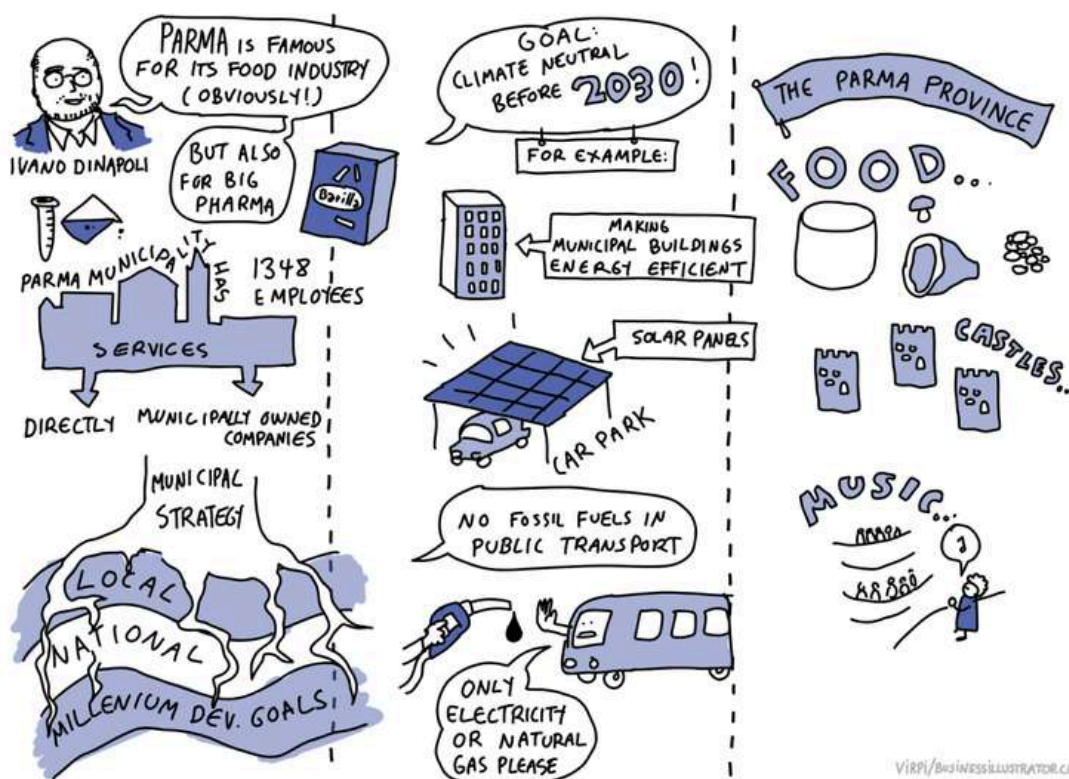 PARMA IS FAMOUS
FOR ITS FOOD INDUSTRY
(OBVIOUSLY!)
IVANO DINAPOLI
BUT ALSO
FOR BIG
PHARMA
Barilla
PARMA MUNICIPALITY HAS
1348
EMPLOYEES
SERVICES
DIRECTLY
MUNICIPALLY OWNED
COMPANIES
MUNICIPAL
STRATEGY
LOCAL
NATIONAL
MILLENIUM DEV. GOALS
GOAL:
CLIMATE NEUTRAL
BEFORE 2030!
FOR EXAMPLE:
MAKING
MUNICIPAL BUILDINGS
ENERGY EFFICIENT
SOLAR PANELS
CAR PARK
NO FOSSIL FUELS IN
PUBLIC TRANSPORT
ONLY
ELECTRICITY
OR NATURAL
GAS PLEASE
THE PARMA PROVINCE
FOOD...
CASTLES...
MUSIC...